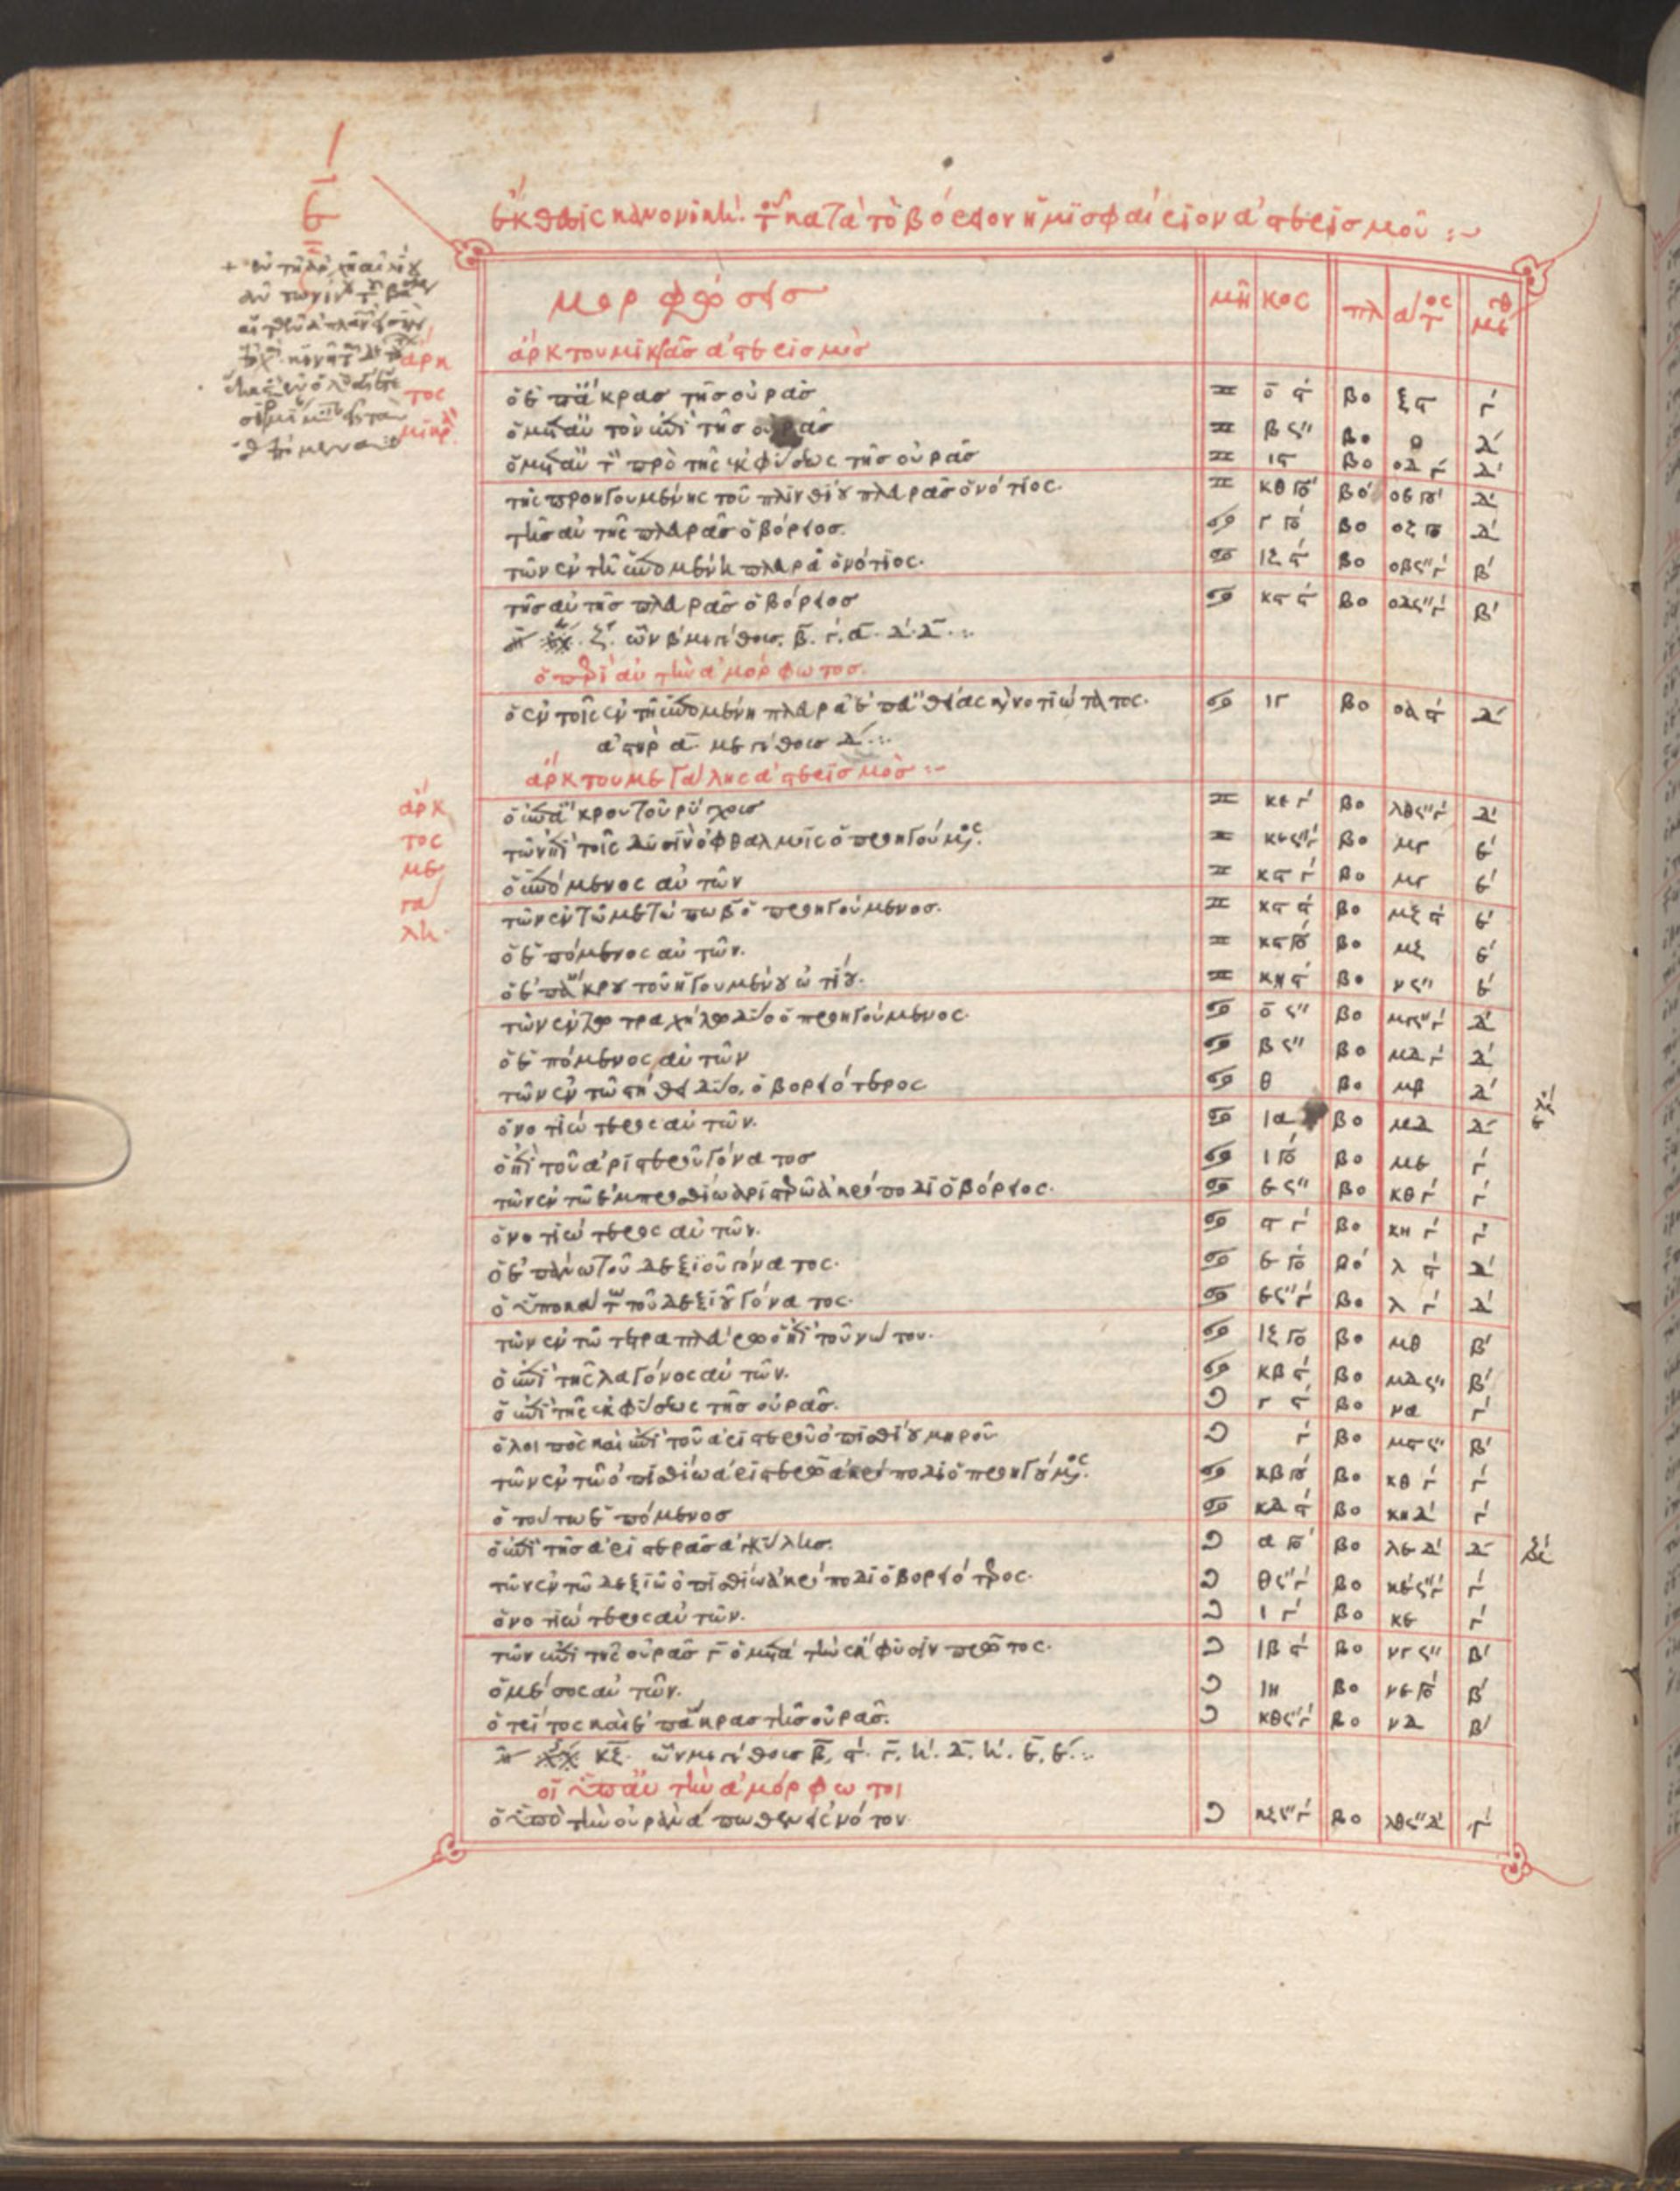 ἔκθεσις κανονικὴ τοῦ κατὰ τὸ βόρειον ἡμισφαίριον ἀστερισμοῦ :~
μορφώσεις μῆκος πλάτος μεγθ
ἄρκτου μικρᾶς ἀστερισμός
ἄρκ
τος
μικρ
ὁ ἐπ' ἄκρας τῆς οὐρᾶς ♊ ο ϛ´ βο ξϛ γ´
ὁ μετ' αὐτὸν ἐπὶ τῆς οὐρᾶς ♊ β ϛ" βο ο δ´
ὁ μετ' αὐτ πρὸ τῆς ἐκφύσεως τῆς οὐρᾶς ♊ ιϛ βο οδ γ´ δ´
τῆς προηγουμένης τοῦ πλινθίου πλευρᾶς ὁ νότιος. ♊ κθ γο´ βο οε γο´ δ´
τῆς αὐτῆς πλευρᾶς ὁ βόρειος. ♋ γ γο´ βο οζ γο δ´
τῶν ἐν τῇ ἑπομένῃ πλευρᾷ ὁ νότιος. ♋ ιζ ϛ´ βο οβ ϛ" γ´ β´
τῆς αὐτῆς πλευρᾶς ὁ βόρειος ♋ κϛ ϛ´ βο οδ ϛ" γ´ β´
ζ. ὧν β μεγέθους. β. γ´. α. δ´. δ :~
ὁ περὶ αὐτὴν ἀμόρφωτος.
ὁ ἐν τοῖς ἐν τῇ ἑπομένῃ πλευρᾷ ἐπ' εὐθείας κ νοτιώτατος. ♋ ιγ βο οα ϛ´ δ´
ἀστὴρ α μεγέθους δ :~
ἄρκτου μεγάλης ἀστερισμός :~
ἄρκ
τος
με
γα
λη
ὁ ἐπ' ἄκρου τοῦ ῥύγχους ♊ κε γ´ βο λθ ϛ" γ´ δ´
τῶν ἐπὶ τοῖς δυσὶν ὀφθαλμοῖς ὁ προηγούμος. ♊ κε ϛ" γ´ βο μγ ε´
ὁ ἑπόμενος αὐτῶν ♊ κϛ γ´ βο μγ ε´
τῶν ἐν τῷ μετώπῳ β ὁ προηγούμενος. ♊ κϛ ϛ´ βο μζ ϛ´ ε´
ὁ ἑπόμενος αὐτῶν. ♊ κϛ γο´ βο μζ ε´
ὁ ἐπ' ἄκρου τοῦ ἡγουμένου ὠτίου. ♊ κη ϛ´ βο ν ϛ" ε´
τῶν ἐν τῷ τραχήλῳ δύο ὁ προηγούμενος ♋ ο ϛ" βο μγ ϛ" γ´ δ´
ὁ ἑπόμενος αὐτῶν ♋ β ϛ" βο μδ γ´ δ´
τῶν ἐν τῷ στήθει δύο, ὁ βορειότερος ♋ θ βο μβ δ´
ὁ νοτιώτερος αὐτῶν. ♋ ια βο μδ δ´
ὁ ἐπὶ τοῦ ἀριστεροῦ γόνατος ♋ ι γο´ βο με γ´
τῶν ἐν τῷ ἐμπροσθίῳ ἀριστερῷ ἀκρόποδι ὁ βόρειος. ♋ ε ϛ" βο κθ γ´ γ´
ὁ νοτιώτερος αὐτῶν. ♋ ϛ γ´ βο κη γ´ γ´
ὁ ἐπάνω τοῦ δεξιοῦ γόνατος. ♋ ε γο´ βο λ ϛ´ δ´
ὁ ὑποκάτω τοῦ δεξιοῦ γόνατος. ♋ ε ϛ" γ´ βο λ γ´ δ´
τῶν ἐν τῷ τετραπλεύρῳ ὁ ἐπὶ τοῦ νώτου. ♋ ιζ γο βο μθ β´
ὁ ἐπὶ τῆς λαγόνος αὐτῶν. ♋ κβ ϛ´ βο μδ ϛ" β´
ὁ ἐπὶ τῆς ἐκφύσεως τῆς οὐρᾶς. ♌ γ ϛ´ βο να γ´
ὁ λοιπὸς καὶ ἐπὶ τοῦ ἀριστεροῦ ὀπισθίου μηροῦ ♌ γ´ βο μϛ ϛ" β´
τῶν ἐν τῷ ὀπισθίῳ ἀριστερῷ ἀκρόποδι ὁ προηγούμος. ♋ κβ γο´ βο κθ γ´ γ´
ὁ τούτῳ ἑπόμενος ♋ κδ ϛ´ βο κη δ´ γ´
ὁ ἐπὶ τῆς ἀριστερᾶς ἀγκύλης. ♌ α γο´ βο λε δ´ δ
τῶν ἐν τῷ δεξιῷ ὀπισθίῳ ἀκρόποδι ὁ βορειότερος. ♌ θ ϛ" γ´ βο κε ϛ" γ´ γ´
ὁ νοτιώτερος αὐτῶν. ♌ ι γ´ βο κε γ´
τῶν ἐπὶ τῆς οὐρᾶς γ ὁ μετὰ τὴν ἔκφυσιν πρῶτος. ♌ ιβ ϛ´ βο νγ ϛ" β´
ὁ μέσος αὐτῶν. ♌ ιη βο νε γο´ β´
ὁ τρίτος καὶ ἐπ' ἄκρας τῆς οὐρᾶς. ♌ κθ ϛ" γ´ βο νδ β´
κζ. ὧν μεγέθους β, ϛ´. γ, η´. δ, η´. ε, ε :~
οἱ ὑπ' αὐτὴν ἀμόρφωτοι
ὁ ὑπὸ τὴν οὐρὰν ἄπωθεν εἰς νότον ♌ κζ ϛ" γ´ βο λθ ϛ" δ´ γ´